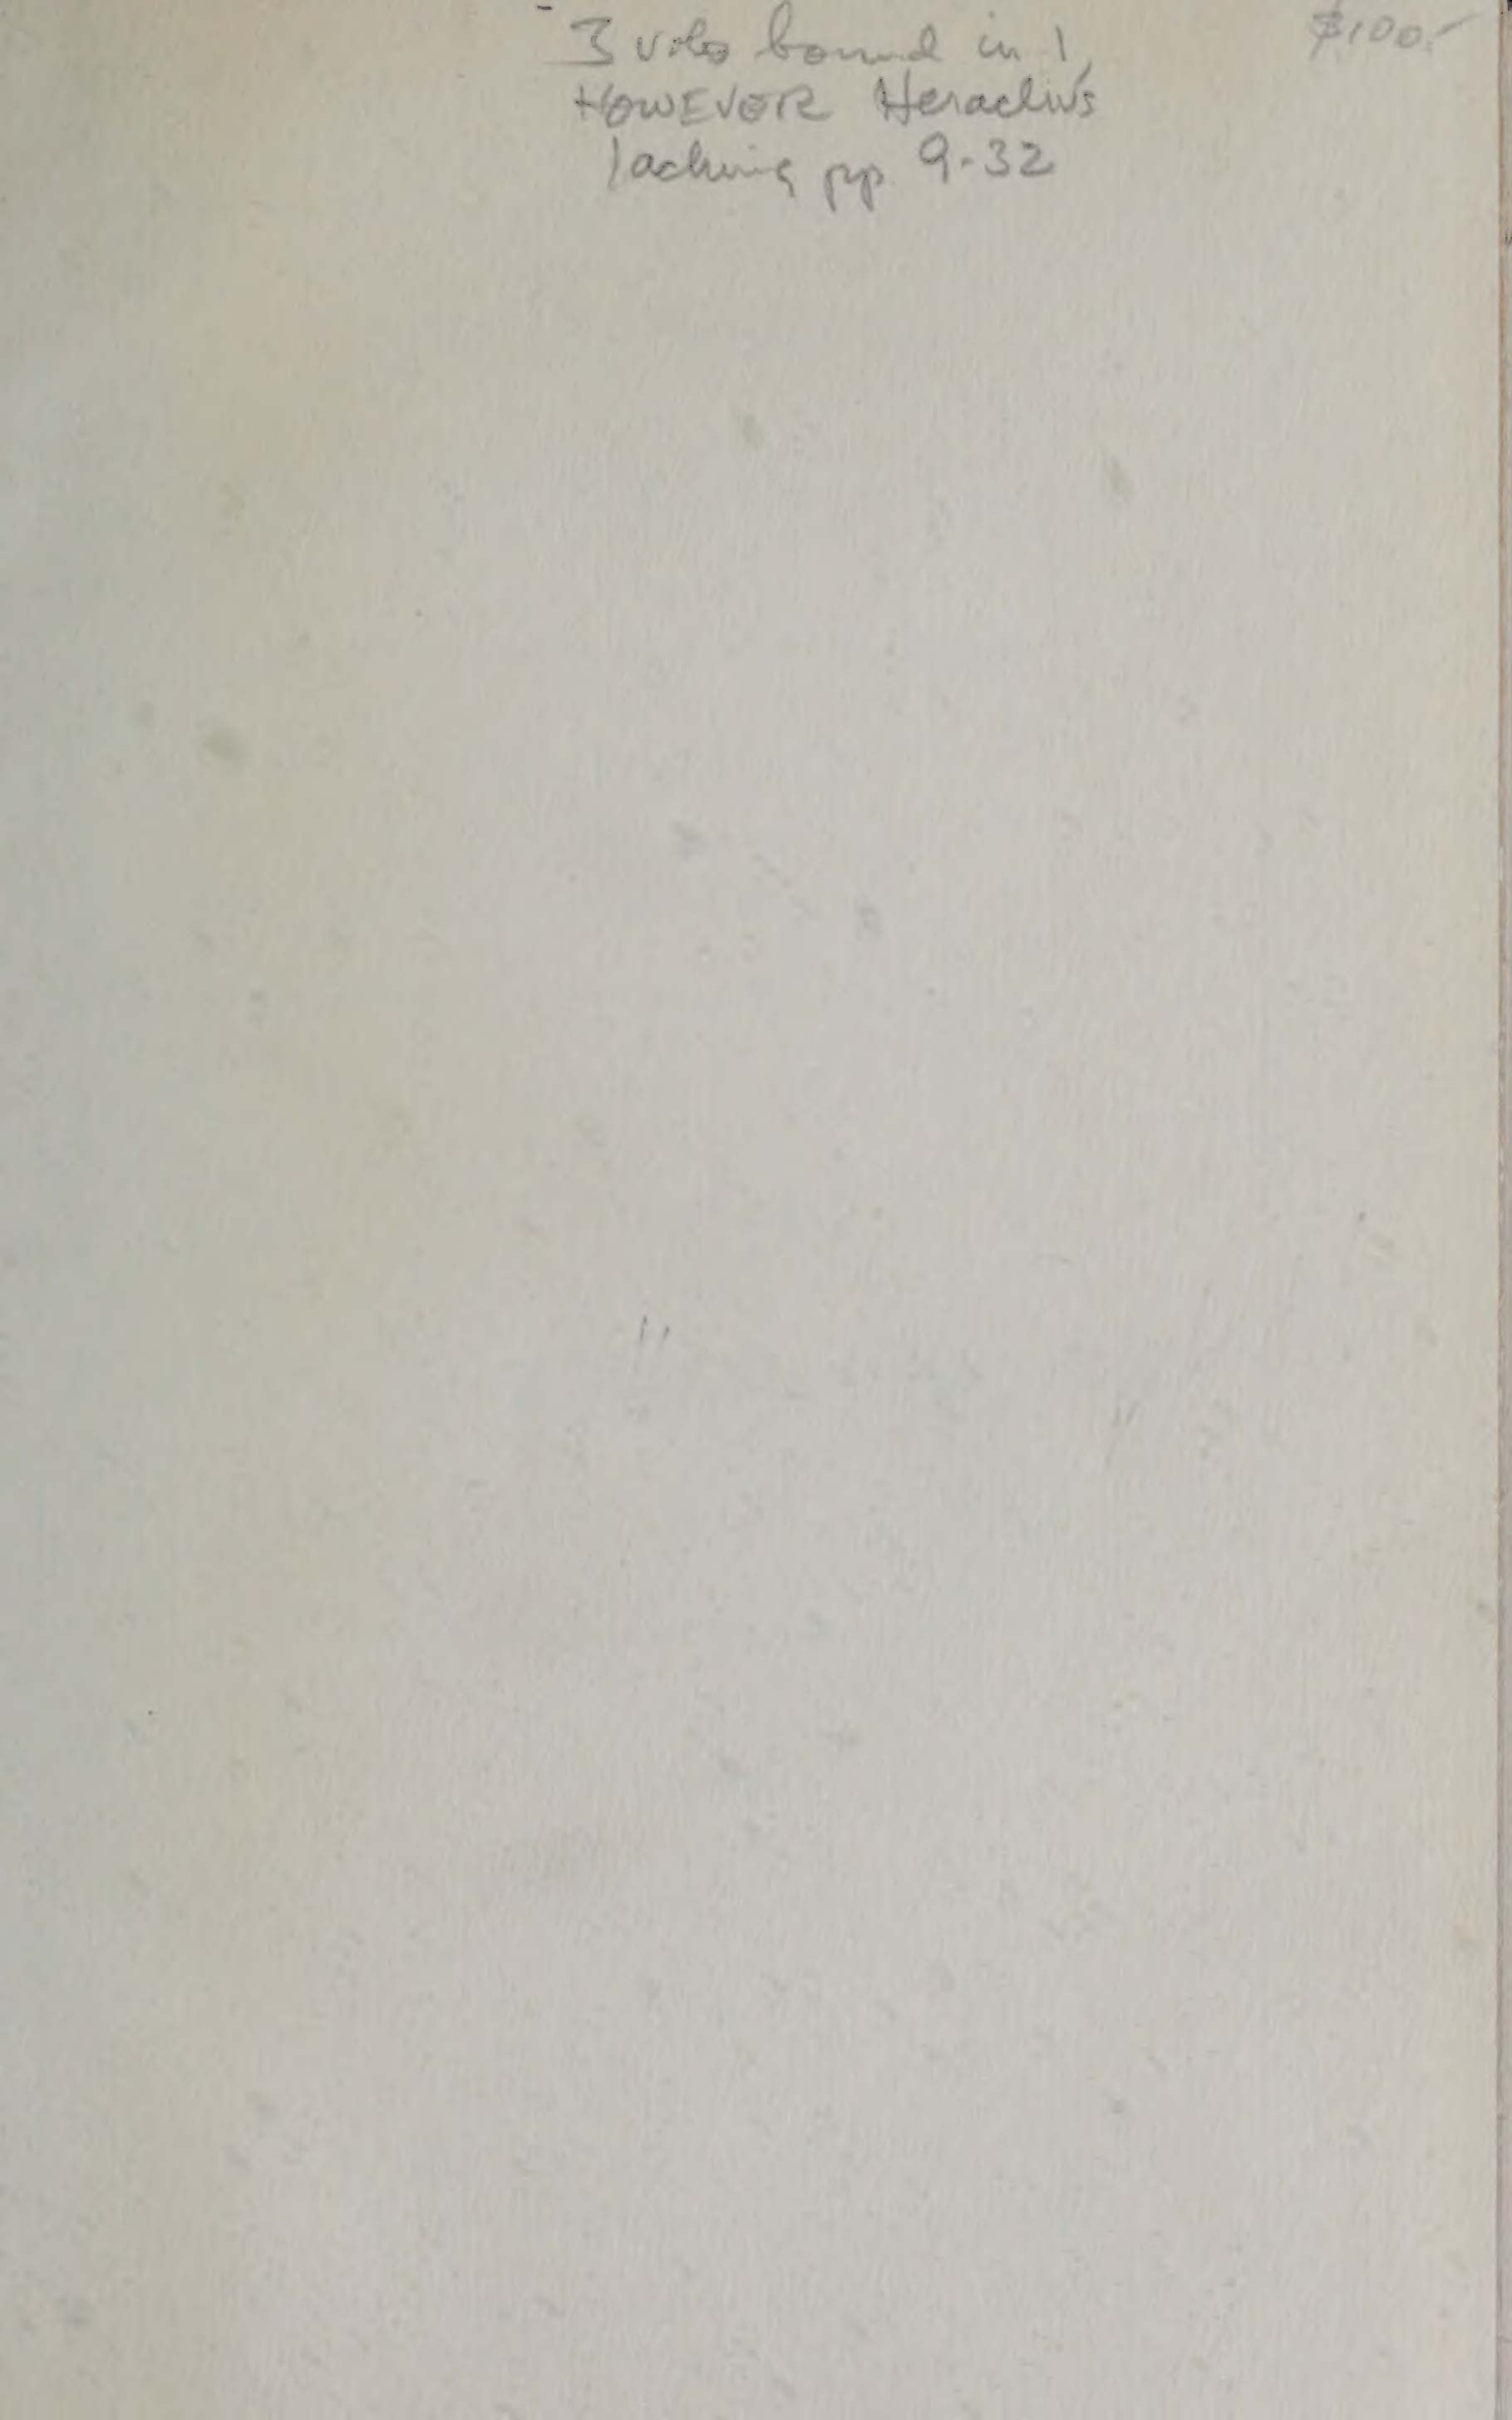 3 vols bound in 1, $100.-
HOWEVER Heraclius
lacking pp 9-32